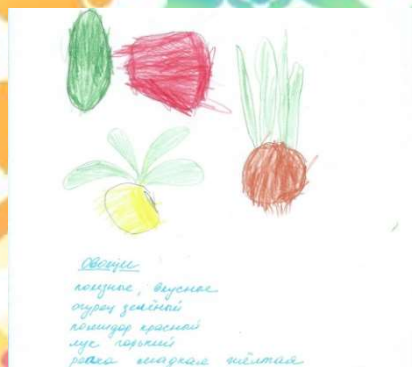 Овощи
полезные, вкусные
огурец зелёный
помидор красный
лук горький
репка сладкая жёлтая